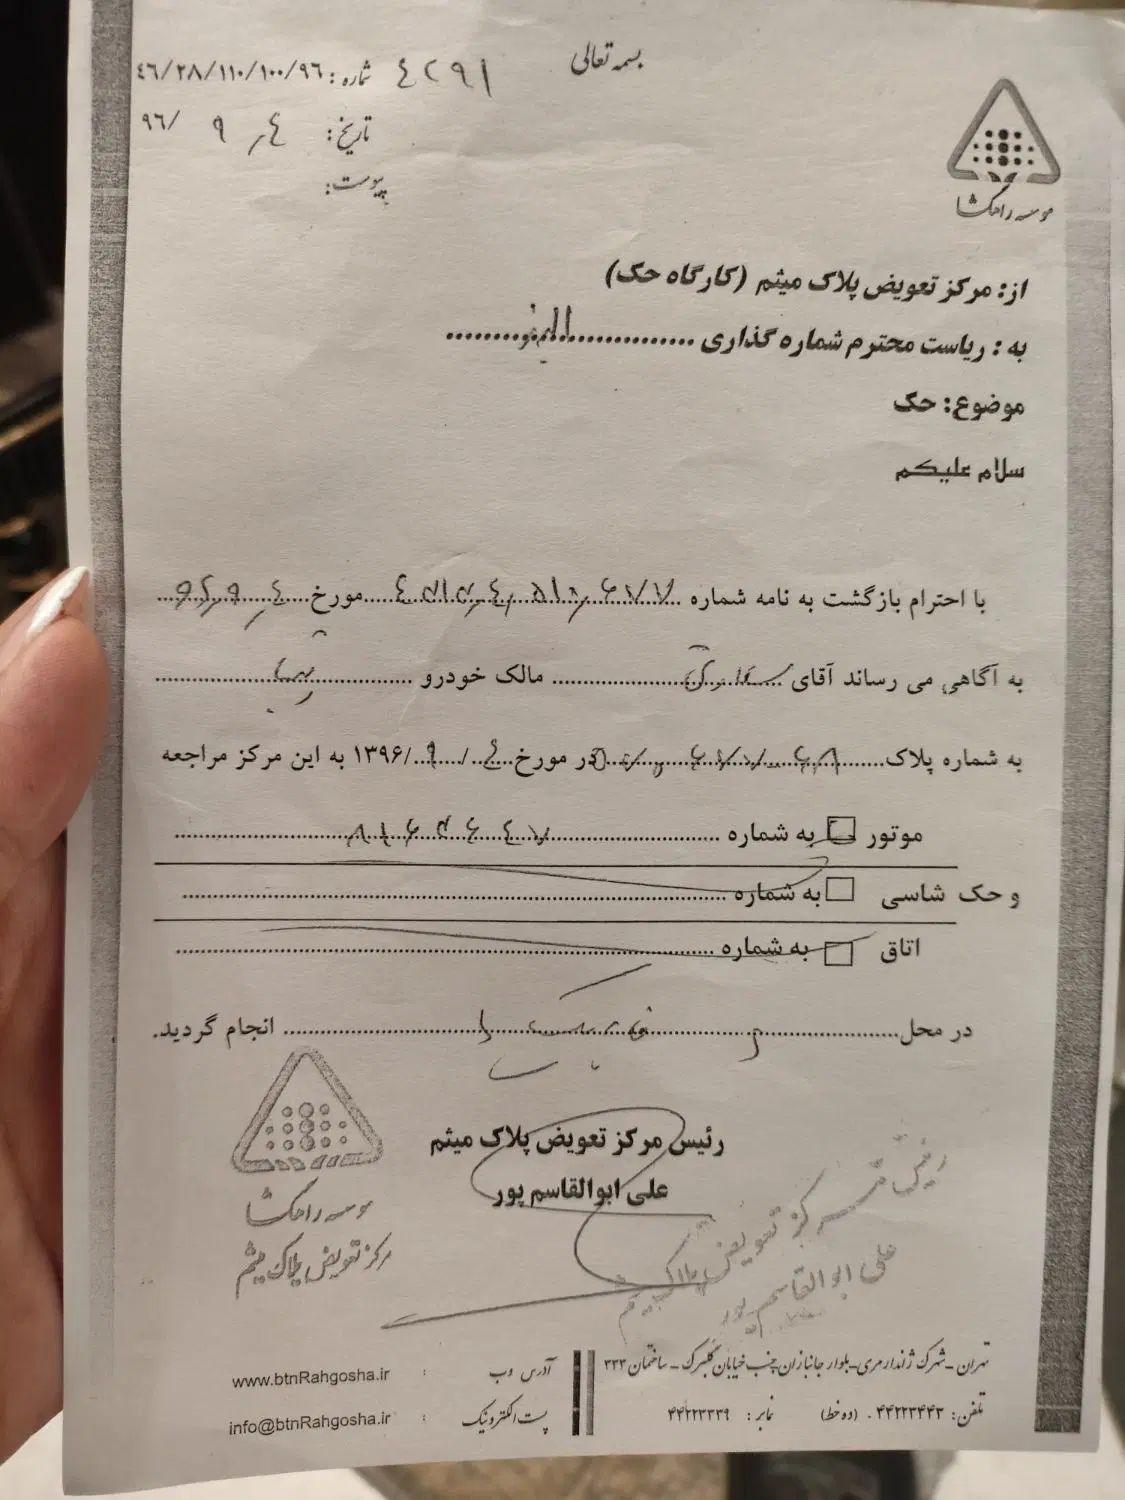 بسمه تعالی
شماره: ۴۶/۲۸/۱۱۰/۱۰۰/۹۶
تاریخ: ۴ ر ۹ /۹۶
پیوست:
موسسه راهگشا
از: مرکز تعویض پلاک میثم (کارگاه حک)
به : ریاست محترم شماره گذاری
موضوع: حک
سلام علیکم
با احترام بازگشت به نامه شماره مورخ
به آگاهی می رساند آقای مالک خودرو
به شماره پلاک در مورخ ۴ / ۹ /۱۳۹۶ به این مرکز مراجعه
موتور به شماره
و حک شاسی به شماره
اتاق به شماره
در محل انجام گردید.
رئیس مرکز تعویض پلاک میثم
علی ابوالقاسم پور
موسسه راهگشا
مرکز تعویض پلاک میثم
رئیس مرکز تعویض پلاک میثم
علی ابوالقاسم پور
تهران - شهرک ژاندارمری - بلوار جانبازان جنب خیابان گلبرگ - ساختمان ۳۳۳
تلفن: ۴۴۲۲۳۴۴۳ . (ده خط) نمابر: ۴۴۲۲۳۳۳۹
آدرس وب : www.btnRahgosha.ir
پست الکترونیک : info@btnRahgosha.ir